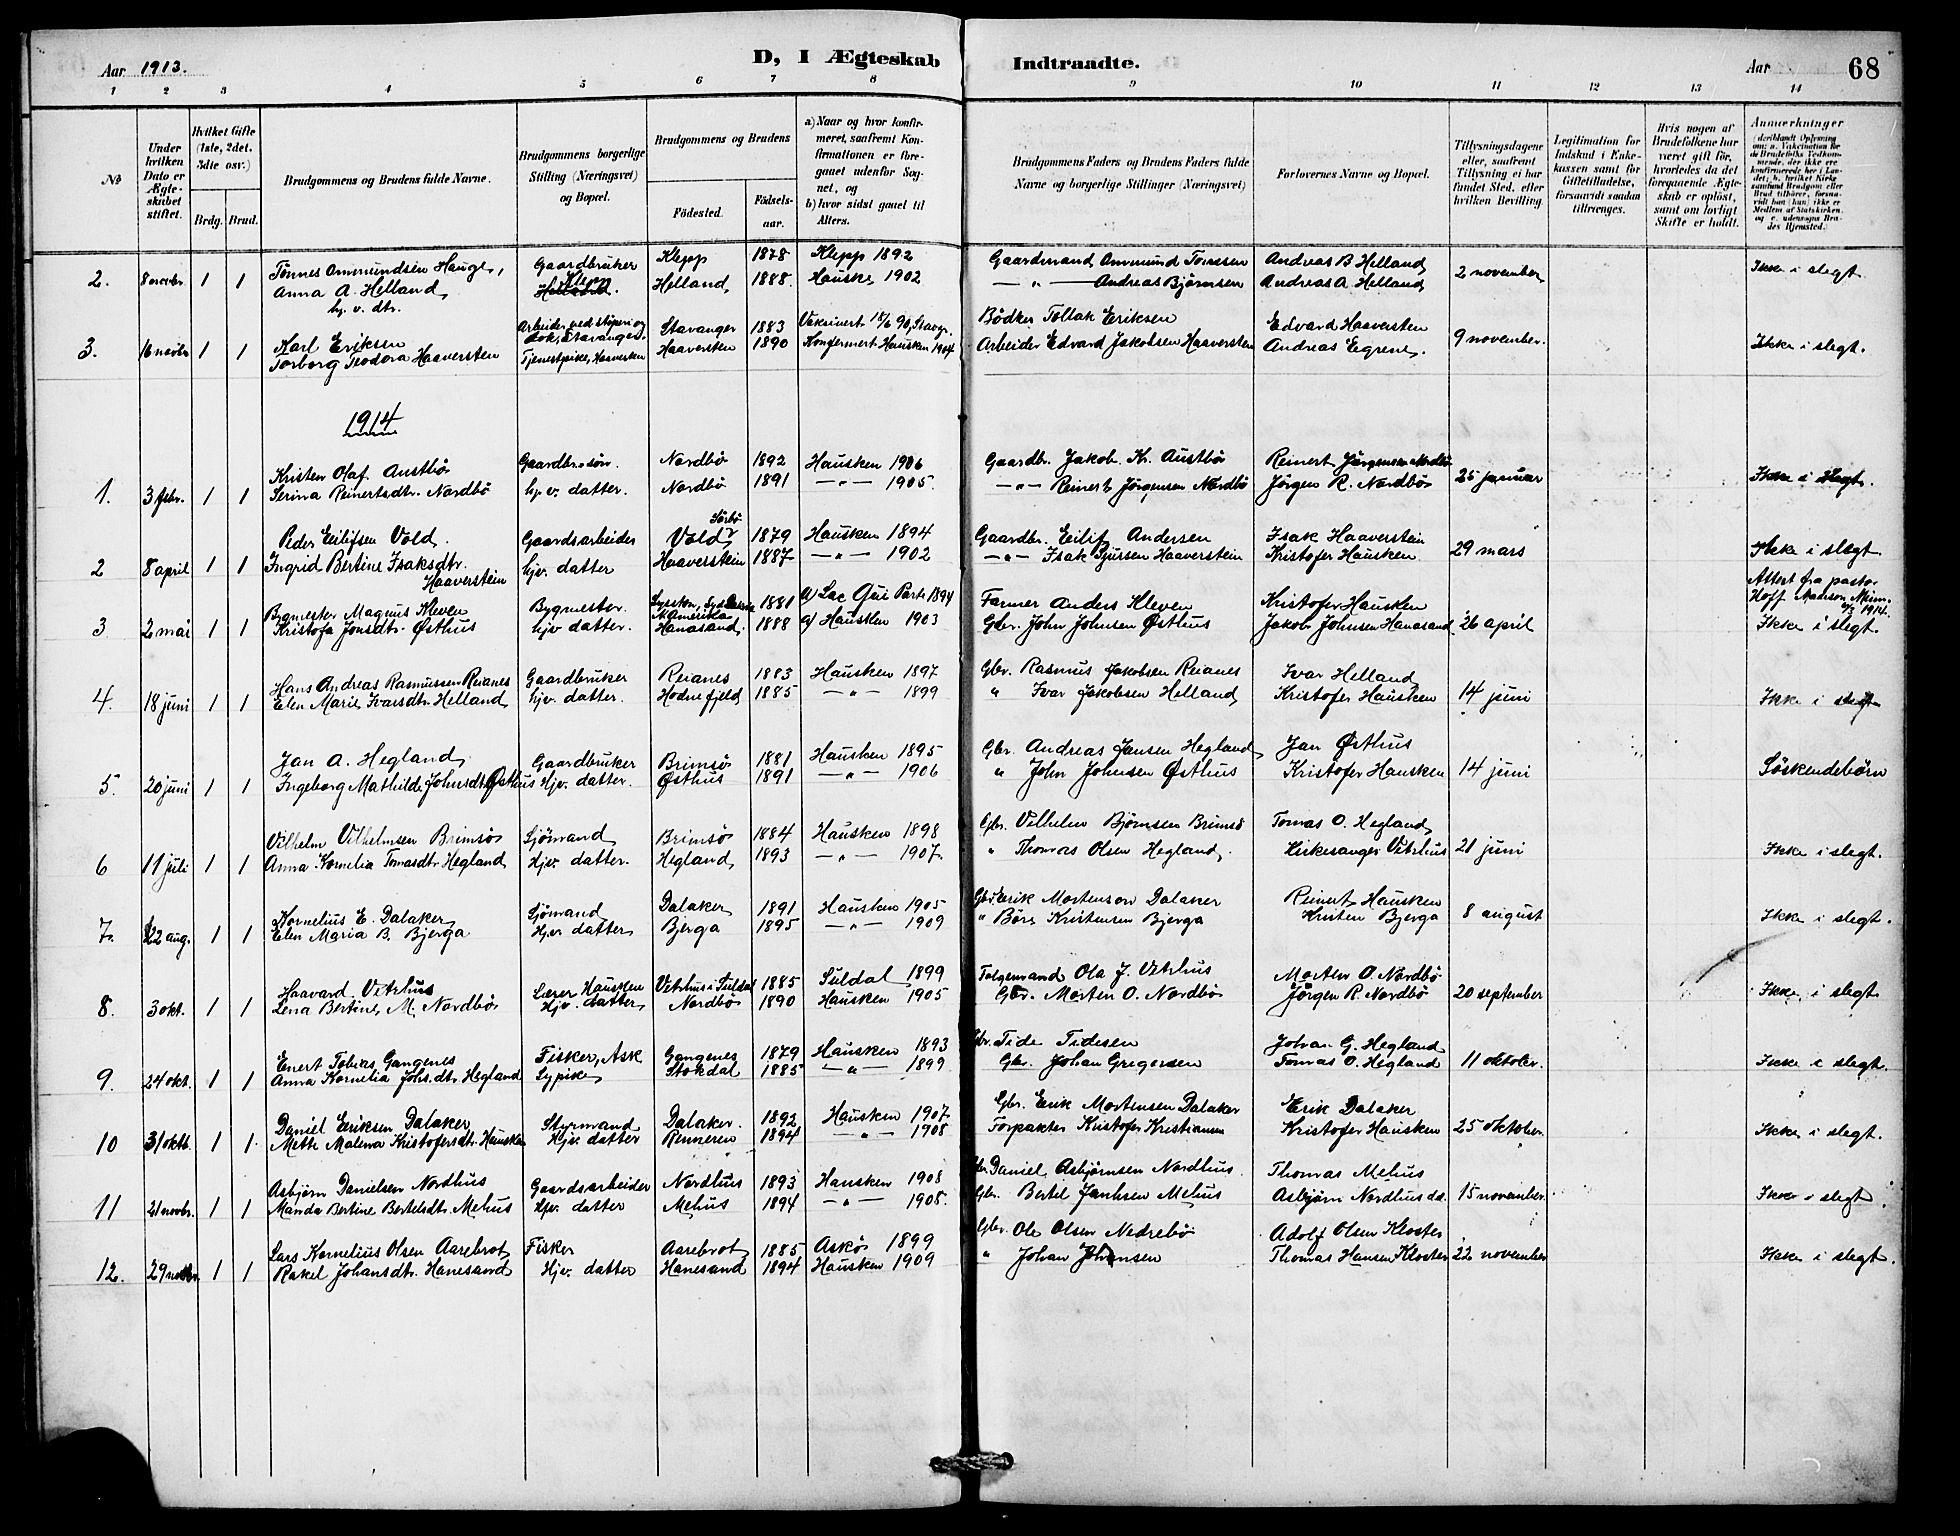 Aar 1913.
D, I Ægteskab Indtraadte.
Aar 68
1 2 3 4 5 6 7 8 9 10 11 12 13 14
No
Under hvilken Dato er Ægteskabet stiftet.
Hvilket Gifte (1ste, 2det, 3die osv.)
Brdg. Brud.
Brudgommens og Brudens fulde Navne.
Brudgommens borgerlige Stilling (Næringsvei) og Bopæl.
Brudgommens og Brudens
Fødested. Fødselsaar.
a) Naar og hvor konfirmeret, saafremt Konfirmationen er foregaaet udenfor Sognet, og
b) hvor sidst gaaet til Alters.
Brudgommens Faders og Brudens Faders fulde Navne og borgerlige Stillinger (Næringsvei)
Forlovernes Navne og Bopæl.
Tillysningsdagene eller, saafremt Tillysning ei har fundet Sted, efter hvilken Bevilling.
Legitimation for Indskud i Enkekassen samt for Giftetilladelse, forsaavidt saadan tiltrænges.
Hvis nogen af Brudefolkene har været gift før, hvorledes da det foregaaende Ægteskab er opløst, samt om lovligt Skifte er holdt.
Anmærkninger (deriblandt Oplysning om: a. Vakcination for de Brudefolks Vedkommende, der ikke ere konfirmerede her i Landet; b. hvilket Kirkesamfund Brudgom eller Brud tilhører, forsavidt han (hun) ikke er Medlem af Statskirken, og c. udensogns Brudes Hjemsted.
2. 8 novbr. 1 1 Tønnes Ommundsen Hauge, Gaardbruker Klepp Klepp 1878 Klepp 1892 Gaardmand Ommund Andreas B Helland 2 november Ikke i slegt.
Anna A. Helland Helland. Helland 1888. Hauske 1902 — " — Andreas Bjørnsen Andreas A. Helland
hj. v. dtr.
3. 16 novbr 1 1 Karl Eriksen Arbeider ved støperi og dok, Stavanger. Stavanger 1883 Vaksinert 15/6 90, Stavgr. Bødker Tollak Eriksen Edvard Haaversten 9 november. Ikke i slegt.
Torborg Teodora Haaversten Tjenestpike, Haaversten Haaversten 1890 Konfermert Hausken 1904 Arbeider Edvard Jakobsen Haaversten Andreas Egrene.
1914
1. 3 febr. 1 1 Kristen Olaf Austbø Gaardbr. søn. Nordbø 1892 Hausken 1906 Gaardbr. Jakob Kr. Austbø Reinert Jørgensen Nordbø 25 januar Ikke i slegt.
Serina Reinertsdtr. Nordbø hj. v. datter. Nordbø 1891 — " — 1905. — " — Reinert Jørgensen Nordbø Jørgen R. Nordbø
2 8 april 1 1 Peder Eilifsen Vold. Gaardsarbeider Vold Sørbø 1879 Hausken 1894 Gaardbr. Eilif Andersen Isak Haaverstein 29 mars Ikke i slegt
Ingrid Bertine Isaksdtr. Haaverstein hjv. datter Haaverstein 1887 — " — 1902 — " — Isak Haaverstein Kristofer Hausken
3 2 mai 1 1 Bygmester Magnus Kleven Bygmester. 1881 a) Lac Qui Parle 1894 Farmer Anders Kleven Kristofer Hausken 26 april Attest fra pastor Hoff 1914.
Kristofa Jonsdtr. Østhus hjv. datter. Hanasand. 1888 a) Hausken 1903 Gbr. John Johnsen Østhus Jakob Johnsen Hanasand Ikke i slegt.
4. 18 juni 1 1 Hans Andreas Rasmussen Reianes Gaardbruker Reianes 1883 Hausken 1897 Gbr. Rasmus Jakobsen Reianes Ivar Helland 14 juni Ikke i slegt
Elen Marie Ivarsdtr. Helland hjv. datter. Hodnefjeld 1885 — " — 1899 " Ivar Jakobsen Helland Kristofer Hausken
5. 20 juni 1 1 Jan A. Hegland Gaardbruker Brimsø 1881 Hausken 1895 Gbr. Andreas Jansen Hegland Jan Østhus 14 juni Søskendebørn
Ingeborg Mathilde Johnsdtr Østhus Hjv. datter. Østhus 1891 — " — 1906 " John Johnsen Østhus Kristofer Hausken
6 11 juli 1 1 Vilhelm Vilhelmsen Brimsø Sjømand Brimsø 1884 Hausken 1898 Gbr. Vilhelm Bjørnsen Brimsø Tomas O. Hegland 21 juni Ikke i slegt.
Anna Kornelia Tomasdtr. Hegland Hjv. datter. Hegland 1893 — " — 1907. " Thomas Olsen Hegland. Kirkesanger Vetrhus
7. 22 aug. 1 1 Kornelius E. Dalaker Sjømand Dalaker 1891 Hausken 1905 Gbr. Erik Mortenson Dalaker Reinert Hausken 8 august Ikke i slegt.
Elen Maria B. Bjerga Hjv. datter Bjerga 1895 — " — 1909 " Børe Kristensen Bjerga Kristen Bjerga
8. 3 okt. 1 1 Haavard Vetrhus Lærer Hausken Vetrhus i Suldal 1885 Suldal 1899 Ola J. Vetrhus Morten O. Nordbø 20 september Ikke i slegt
Lena Bertine M. Nordbø Hjv. datter Nordbø 1890 Hausken 1905 Gbr. Morten O. Nordbø Jørgen R. Nordbø
9. 24 okt. 1 1 Enert Tobias Gangenes Fisker, Ask Gangenes 1879 Hausken 1893 Gbr. Tide Tidesen Johan G. Hegland 11 oktober. Ikke i slegt.
Anna Kornelia Johs.dtr. Hegland Sypike Stokdal 1885 — " — 1899 Gbr. Johan Gregersen Tomas O. Hegland
10 31 oktb. 1 1. Daniel Eriksen Dalaker Styrmand Dalaker. 1892 Hausken 1907. Gbr. Erik Mortensen Dalaker Erik Dalaker 25 oktober. Ikke i slegt.
Mette Malena Kristofersdtr. Hausken Hjv. datter Renneren 1894 — " — 1908 Forpakter Kristofer Kristiansen Kristofer Hausken
11 21 novbr. 1 1 Asbjørn Danielsen Nordhus Gaardsarbeider Nordhus 1893 Hausken 1908 Gbr. Daniel Asbjørnsen Nordhus. Thomas Mehus 15 november. Ikke i slegt
Manda Bertine Bertelsdtr. Mehus Hjv. datter Mehus 1894 — " — 1908. Gbr. Bertel Mehus Asbjørn Nordhus
12. 29 novbr. 1 1 Lars Kornelius Olsen Aarebrot Fisker Aarebrot 1885 Askøs 1899 Gbr. Ole Olsen Nedrebø Adolf Olsen Kloster 22 november Ikke i slegt.
Rakel Johansdtr. Hanesand Hjv. datter Hanesand 1894 Hausken 1909 " Johan Johansen Thomas Hansen Kloster